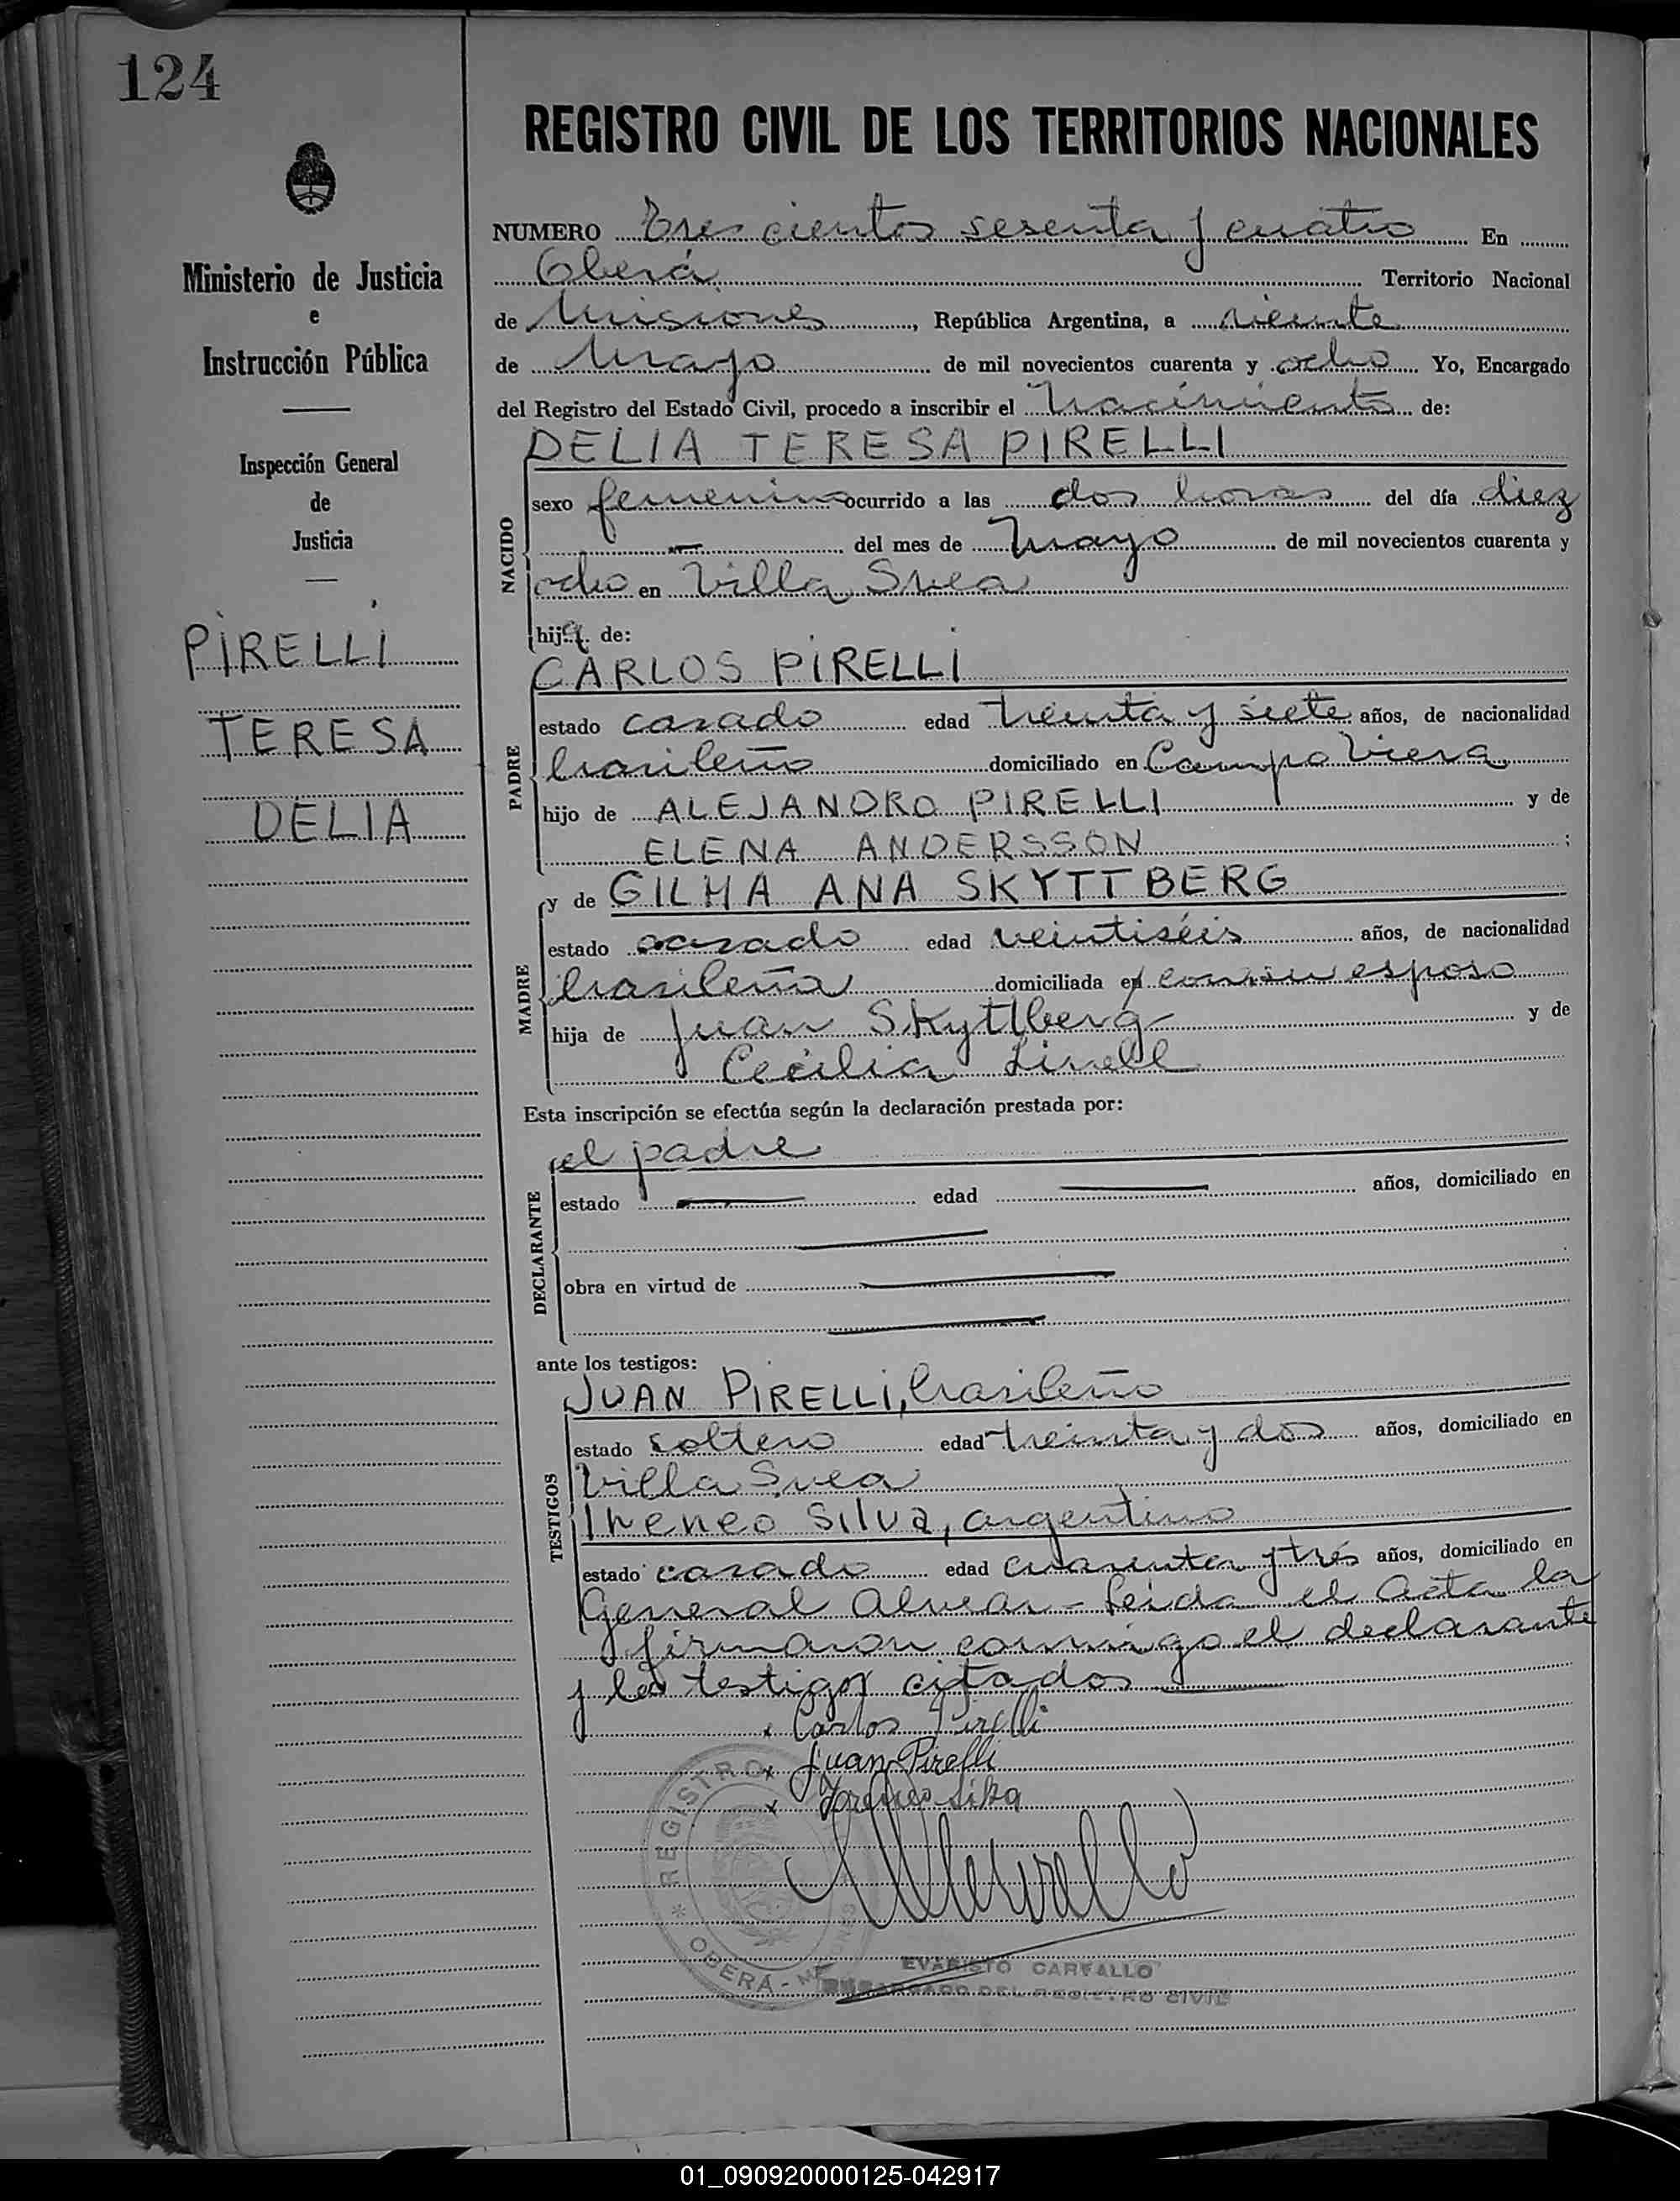 124
REGISTRO CIVIL DE LOS TERRITORIOS NACIONALES
Ministerio de Justicia
e
Instrucción Pública
Inspección General
de
Justicia
PIRELLI
TERESA
DELIA
NUMERO Trescientos sesenta y cuatro En
Oberá Territorio Nacional
de Misiones, República Argentina, a veinte
de Mayo de mil novecientos cuarenta y ocho Yo, Encargado
del Registro del Estado Civil, procedo a inscribir el Nacimiento de:
DELIA TERESA PIRELLI
NACIDO
sexo femenino ocurrido a las dos horas del día diez
— del mes de Mayo de mil novecientos cuarenta y
ocho en Villa Svea
hija de:
CARLOS PIRELLI
PADRE
estado casado edad treinta y siete años, de nacionalidad
brasileño domiciliado en Campo Viera
hijo de ALEJANDRO PIRELLI y de
ELENA ANDERSSON ;
y de GILMA ANA SKYTTBERG
MADRE
estado casado edad veintiséis años, de nacionalidad
brasileña domiciliada en con su esposo
hija de Juan Skyttberg y de
Cecilia
Esta inscripción se efectúa según la declaración prestada por:
el padre
DECLARANTE
estado — edad — años, domiciliado en
obra en virtud de —
ante los testigos:
JUAN PIRELLI, brasileño
TESTIGOS
estado soltero edad treinta y dos años, domiciliado en
Villa Svea
Ireneo Silva, argentino
estado casado edad cuarenta y trés años, domiciliado en
General Alvear - Leida el Acta la
firmaron conmigo el declarante
y los testigos citados —
x Carlos Pirelli
x Juan Pirelli
x Ireneo Silva
REGISTRO
OBERÁ - MISIONES
EVARISTO CARVALLO
ENCARGADO DEL REGISTRO CIVIL
01_090920000125-042917